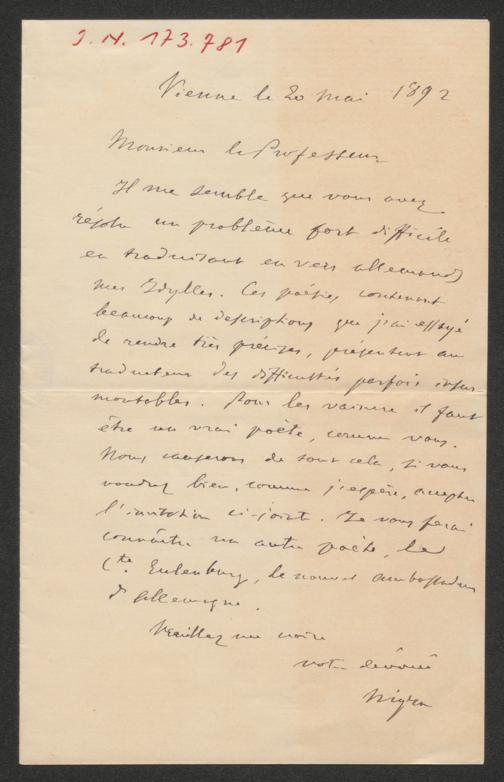 J.N. 173.781
Vienne le 20 mai 1892
Monsieur le Professeur
Il me semble que vous avez
résolu un problème fort difficile
en traduisant en vers allemands
mes Idylles. Ces poésies contenant
beaucoup de descriptions que j'ai essayé
de rendre très précises, présentent au
traducteur des difficultés parfois insur-
montables. Pour les vaincre il faut
être un vrai poète, comme vous.
Nous causerons de tout cela, si vous
voudrez bien, comme j'espère, accepter
l'invitation ci-jointe. Je vous ferai
connaître un autre poète, le
Cte Eulenburg, le nouvel ambassadeur
d'Allemagne.
Veuillez me croire
votre dévoué
Nigra